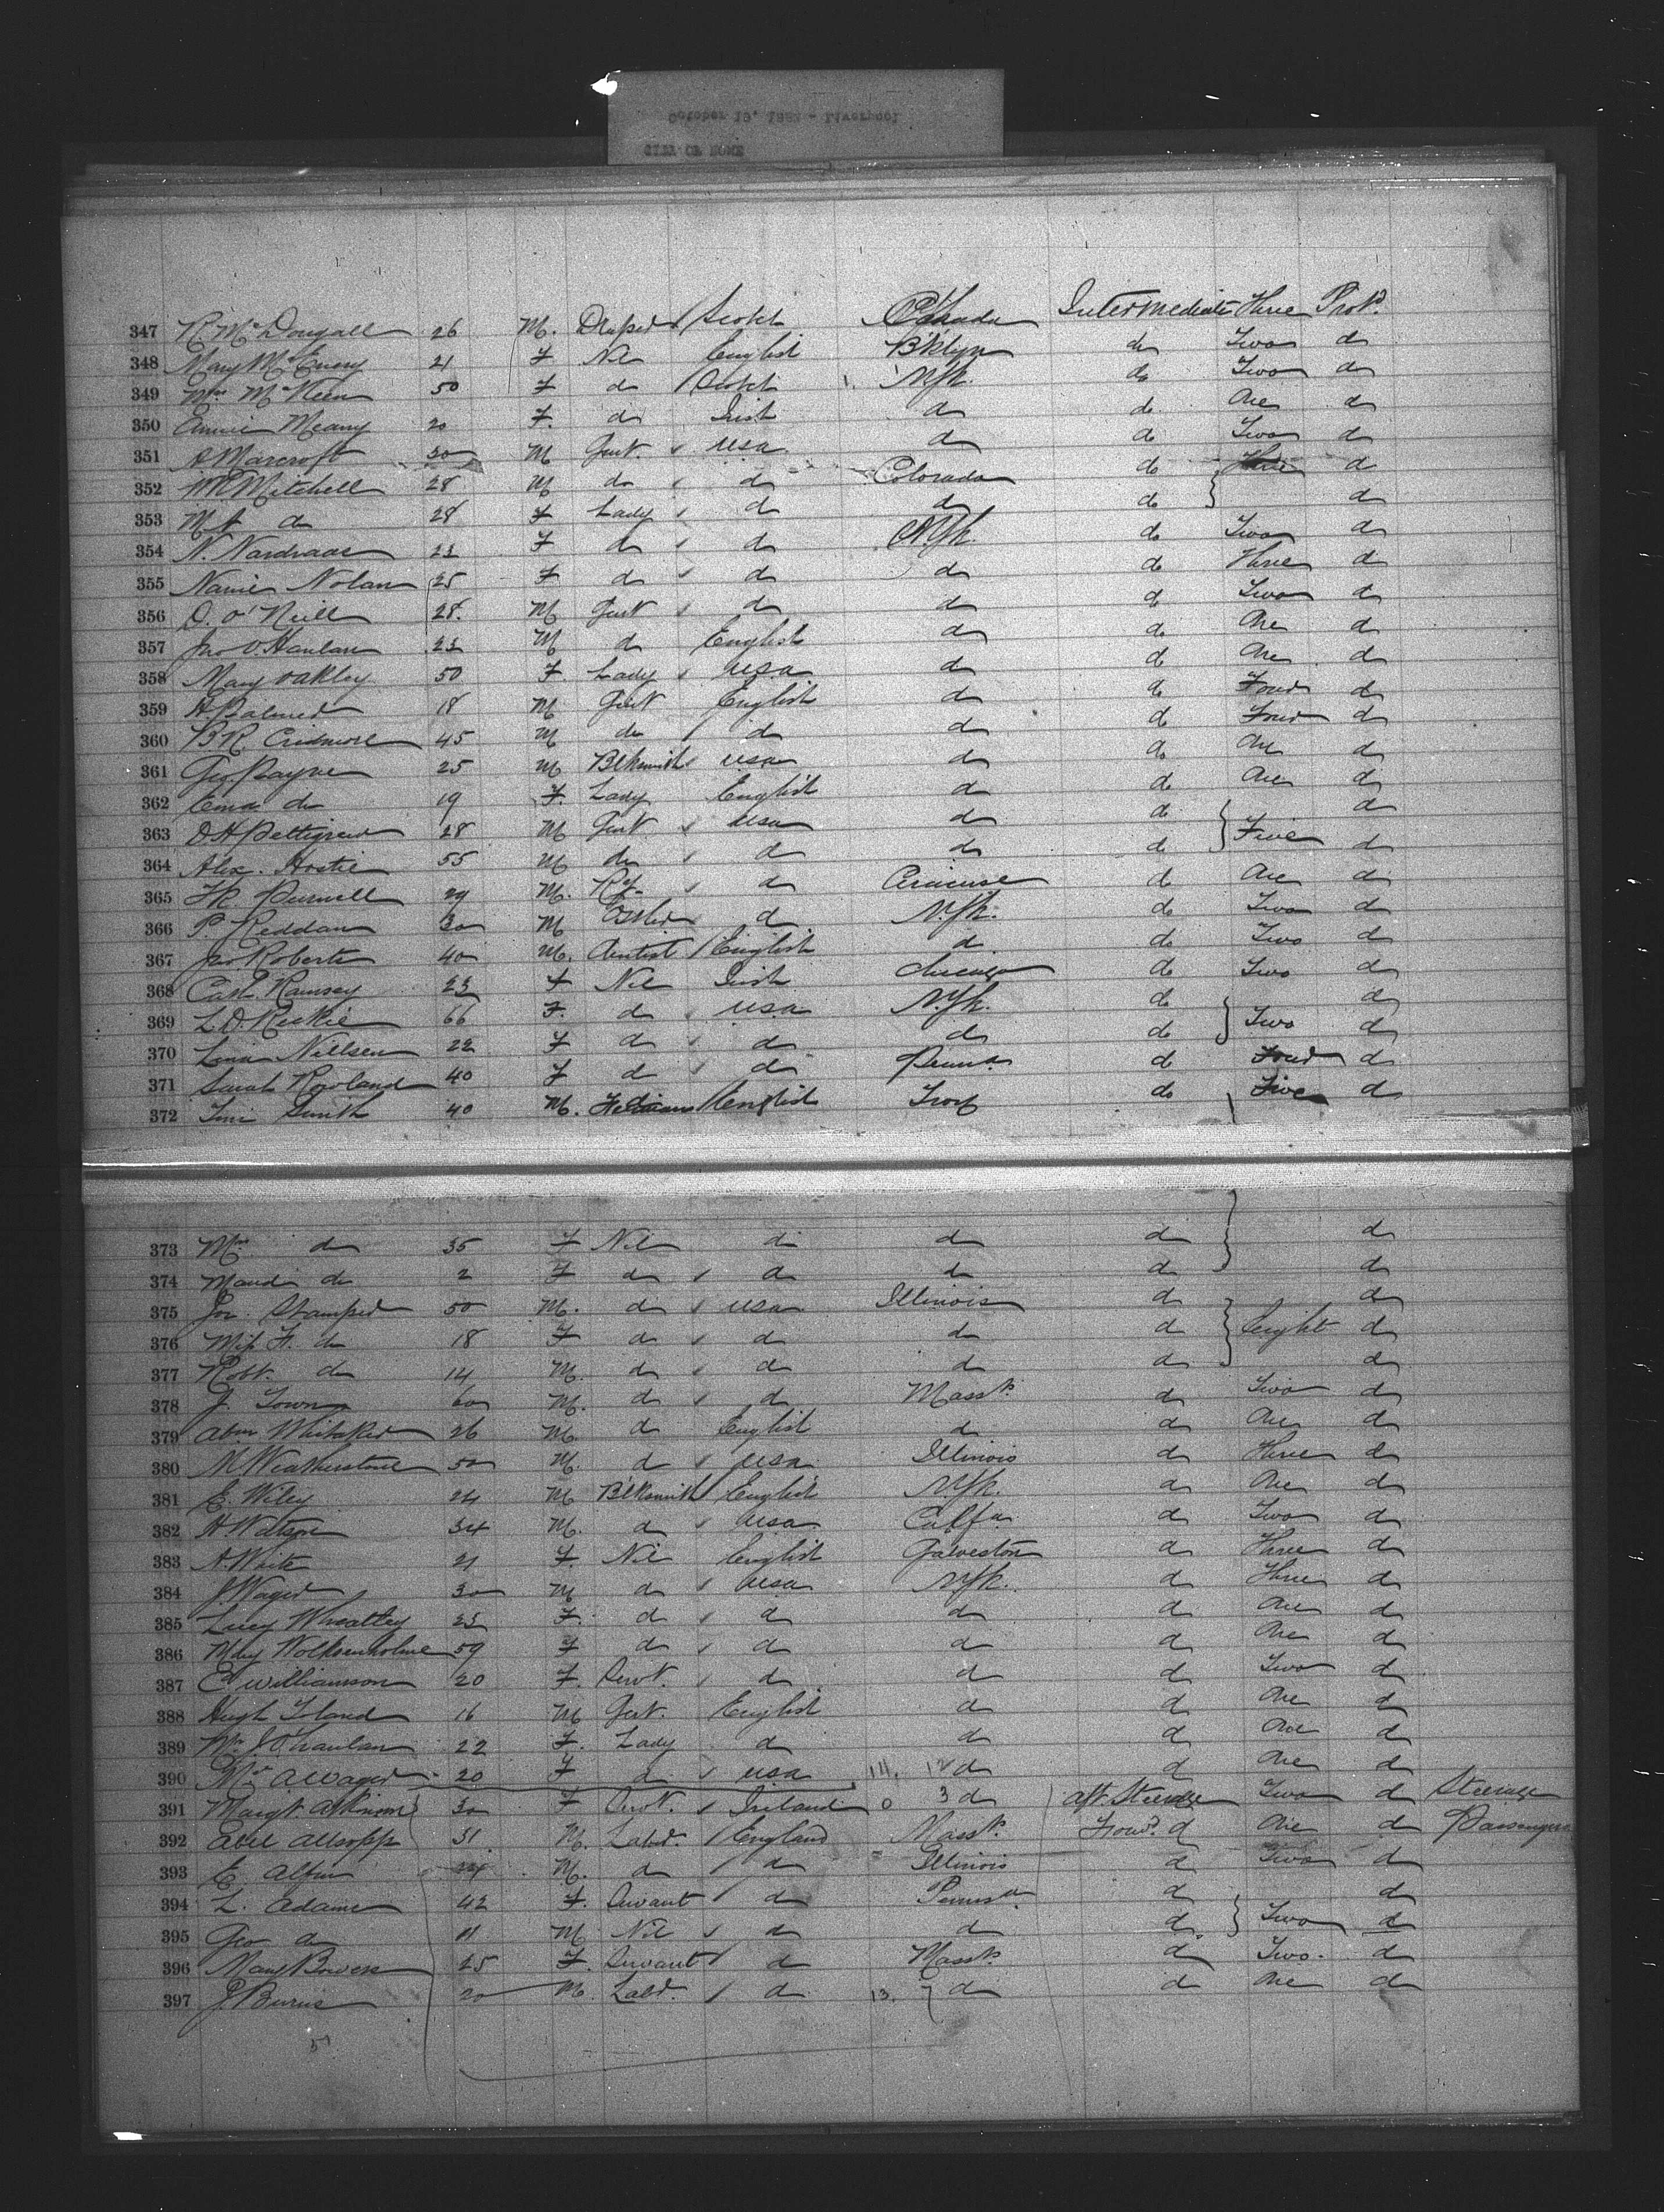 October 19, 188 - Liverpool
CITY OF ROME
347 R McDougall 26 M. Draper Scotch Canada Intermediate Three Prot.
348 Mary McEvery 21 F Nil English B'klyn do Two do
349 Mrs McKeen 50 F do Scotch N.Yk. do Two do
350 Annie Meany 20 F. do Irish do do One do
351 A Marcroft 30 M Gent. USA do do Two do
352 W Mitchell 28 M do do Colorado do Three do
353 M A do 28 F Lady do do do do
354 N. Nardraas 23 F do do N.Yk. do Two do
355 Namie Nolan 25 F do do do do Three do
356 D. O'Neill 28 M Gent do do do Two do
357 Jno O'Hanlan 23 M do English do do One do
358 Mary Oakley 50 F Lady USA do do One do
359 H. Palmer 18 M Gent English do do Four do
360 B.R. 45 M do do do do Four do
361 Geo Payne 25 M Blksmith USA do do One do
362 Ema do 19 F. Lady English do do One do
363 D H Pettigrew 28 M Gent USA do do Five do
364 Alex. 55 M do do do do do
365 Purnell 29 M. do do One do
366 P. Reddan 30 M do N.Yk. do Two do
367 Jno Roberts 40 M. English do do Two do
368 Cath Ramsey 23 F Nil Irish Chicago do Two do
369 L.D. Reekie 66 F. do USA N.Yk. do Two do
370 Lina Nillsen 22 F do do do do do
371 Sarah Rowland 40 F do do Penna. do Four do
372 Smith 40 M. English Troy do Five do
373 Mrs do 35 F Nil do do do do
374 Maud do 2 F do do do do do
375 Jno. Stamper 50 M. do USA Illinois do do
376 Miss F. do 18 F do do do do Eight do
377 Robt. do 14 M. do do do do do
378 J. Town 60 M. do do Masss. do Two do
379 Abm Whitaker 26 M do English do do One do
380 M Weatherstone 50 M. do USA Illinois do Three do
381 E. Wiley 24 M Blksmith English N.Yk. do One do
382 H. Watson 34 M. do USA Calfa do Two do
383 A. White 21 F. Nil English Galveston do Three do
384 J. Wager 30 M do USA N.Yk. do Three do
385 Lucy Wheatley 23 F. do do do do One do
386 Mary Wolksenholme 59 F do do do do One do
387 E Williamson 20 F. Servt. do do do Two do
388 Hugh 16 M Gent. English do do One do
389 Mrs J O'Hanlan 22 F. Lady do do do One do
390 Mrs A Wager 20 F do USA 111. 12 do do One do
391 Margt. Atkinson 30 F Servt. Ireland 0 3 do Aft. Steerage Two do Steerage
392 Abel Allsopp 31 M. Labr. England Masss. Forwd. do One do Passengers
393 E. 24 M. do do Illinois do Two do
394 L. Adams 42 F. Servant do Penna. do Two do
395 Geo do 11 M Nil do do do do
396 Mary Bowers 25 F. Servant do Masss. do Two. do
397 J Burns 20 M. Labr. do 13. do do One do